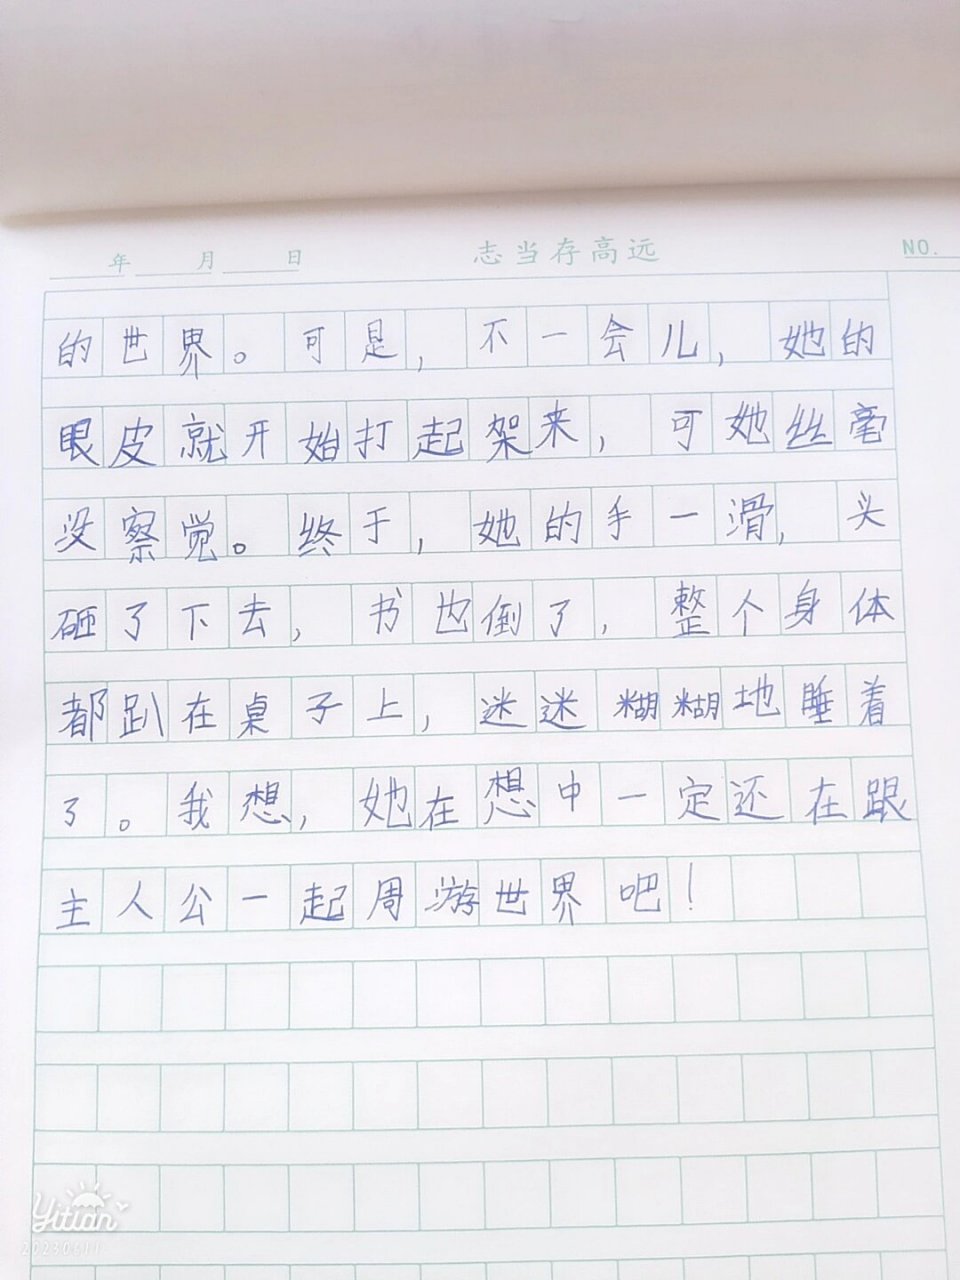 年 月 日 志当存高远 NO.
的世界。可是，不一会儿，她的
眼皮就开始打起架来，可她丝毫
没察觉。终于，她的手一滑，头
砸了下去，书也倒了，整个身体
都趴在桌子上，迷迷糊糊地睡着
了。我想，她在想中一定还在跟
主人公一起周游世界吧！
Yitian
20230611